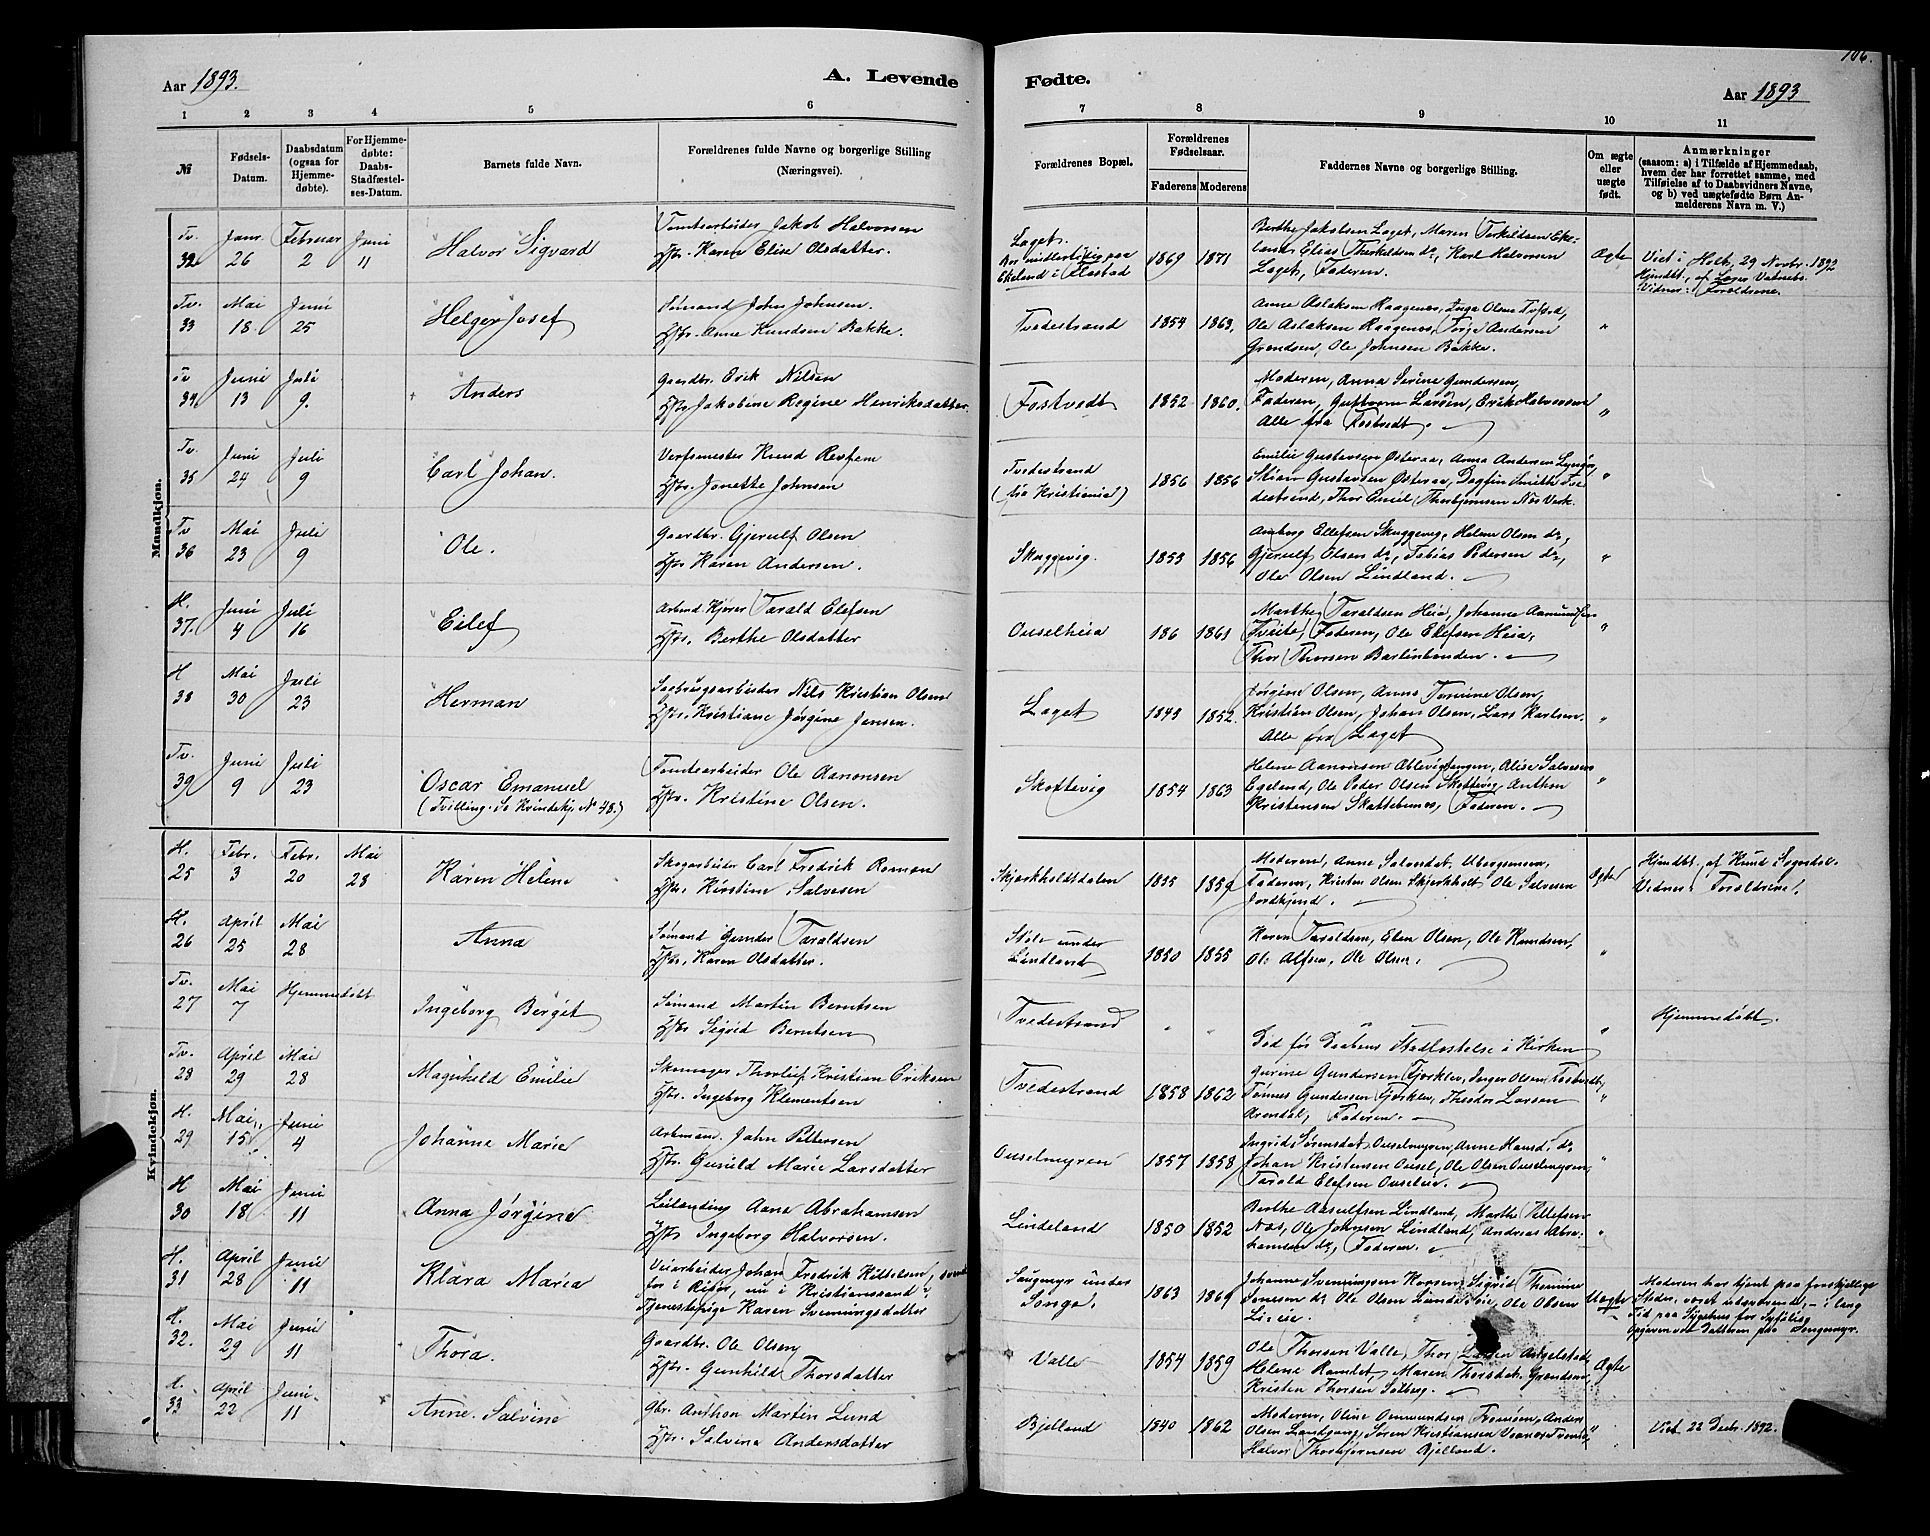 106.
Aar 1893.
A. Levende
Fødte.
Aar 1893
1 2 3 4 5 6 7 8 9 10 11
№
Fødsels-
Datum.
Daabsdatum
(ogsaa for
Hjemme-
døbte).
For Hjemme-
døbte:
Daabs-
Stadfæstel-
ses-Datum.
Barnets fulde Navn.
Forældrenes fulde Navne og borgerlige Stilling
(Næringsvei).
Forældrenes Bopæl.
Forældrenes
Fødselsaar.
Faderens Moderens
Faddernes Navne og borgerlige Stilling.
Om ægte
eller
uægte
født.
Anmærkninger
(saasom: a) i Tilfælde af Hjemmedaab,
hvem der har forrettet samme, med
Tilføielse af to Daabsvidners Navne,
og b) ved uægtefødte Børn An-
melderens Navn m. V.)
Mandkjøn.
Tv. Janr. Februar Juni
32 26 2 11
Halvor Sigvard
Tomtearbeider Jakob Halvorsen
Hstr. Karen Elise Olsdatter.
Laget.
Bor midlertidig paa
Ekeland i Flostad
1869 1871
Berthe Jakobsen Laget, Maren Terkildsen Eke-
land, Elias Therkeldsen do, Karl Halvorsen
Laget, Faderen.
Ægte
Viet i Holt 29 Novbr. 1892
Hjmdbt. af
Vidner: Forældrene.
Tv. Mai Juni
33 18 25
Helge Josef
Sömand John Johnsen.
Hstr. Anne Knudsen Bakke.
Tvedestrand
1854 1863.
Anne Aslaksen Raagenes, Inga Olsen
Ole Aslaksen Raagenes, Terje Andersen
Grendsen, Ole Johnsen Bakke.
"
Tv Juni Juli
34 13 9.
Anders
Gaardbr. Erik Nilsen
Hstr Jakobine Regine Henriksdatter.
Fostvedt
1852 1860.
Moderen, Anna Serine Gundersen,
Faderen, Larsen, Erik Halvorsen
Alle fra Fostvedt.
"
Tv. Juni Juli
35 24 9
Carl Johan.
Verfsmester Knud Revfem
Hstr. Jonette Johnsen
Tvedestrand
(fra Kristiania)
1856 1856
Emilie Gustavsen Østeraa, Anna Andersen Lyngør,
Gustavsen Østeraa, Dagfin Smith Tve-
destrand, Thor Emil Thorbjørnsen Næs Verk.
"
Tv Mai Juli
36 23 9
Ole.
Gaardbr. Gjerulf Olsen
Hstr Karen Andersen.
Skuggevig.
1853 1856
Ellefsen Skuggevig, Helene Olsen do,
Gjerulf Olsen do, Tobias Pedersen do,
Ole Olsen Lindland.
"
H. Juni Juli
37. 4 16
Eilef
Arbmd. Kjører Tarald Elefsen
Hstr. Berthe Olsdatter
Ouselheia
186 1861
Marthe Taraldsen Heia, Johanne Aamundsen
Tveite, Faderen, Ole Elefsen Heia,
Thor Thorsen
"
H Mai Juli
38 30 23
Herman
Sagbrugsarbeider Nils Kristian Olsen
Hstr. Kristiane Jørgine Jensen.
Laget
1843 1852.
Jørgine Olsen, Anne Tomine Olsen,
Kristian Olsen, Johan Olsen, Lars Karlsen.
Alle fra Laget
"
Tv. Juni Juli
39 9 23
Oscar Emanuel
(Tvilling. Se Kvindekj. No 48.)
Tomtearbeider Ole Aanonsen
Hstr. Kristine Olsen.
Skottevig
1854 1863
Helene Aanonsen Alise Salvesen
Egeland, Ole Peder Olsen Skottevig, Anthon
Kristensen Skottebunes, Faderen.
"
Kvindekjøn.
H. Febr. Febr. Mai
25 3 20 23
Karen Helene
Skogarbeider Carl Fredrik Roman
Hstr. Kirstine Salvesen
Skjerkholtdalen
1855 1859
Moderen, Anne Salvesdat.
Faderen, Kristen Olsen Skjerkholt, Ole Salvesen
Ægte
Hjmdbt. af Knud
Vidner: Forældrene.
H. April Mai
26 25 28
Anna
Sömand Gunder Taraldsen
Hstr. Karen Olsdatter.
under
Lindland
1850 1855
Karen Taraldsen, Elen Olsen, Ole Knudsen,
Ole Alfsen, Ole Olsen.
"
Tv. Mai Hjemmedøbt
27 7
Ingeborg Bergit
Sömand Martin Berntsen
Hstr Sigrid Berntsen
Tvedestrand
" "
Død før Daabens Stadfæstelse i Kirken
"
Hjemmedöbt.
Tv. April Mai
28 29 28
Magnhild Emilie
Skomager Thorleif Kristian Eriksen
Hstr. Ingeborg Klementsen
Tvedestrand
1858 1862
Gurine Gundersen Fjerklev, Inger Olsen Fostvedt,
Tønnes Gundersen Fjerklev, Theodor Larsen
Arendal, Faderen.
"
H. Mai Juni
29 15 4
Johanne Marie
Arbmand. John Pettersen
Hstr. Gunild Marie Larsdatter
Ouselmyren
1857 1858
Ingrid Sørensdat. Ouselmyren, Anne Hansd. do
Johan Kristensen Ousel, Ole Olsen Ouselmyren,
Tarald Elefsen Ouselheia.
"
H Mai Juni
30 18 11
Anna Jørgine
Leilænding Aane Abrahamsen
Hstr Ingeborg Halvorsen.
Lindeland
1850 1852
Berthe Lindland, Marthe Tellefsen
Næs, Ole Johnsen Lindland, Andreas Abra-
hamsen do, Faderen.
"
H. April Juni
31 28 11
Klara Maria
Veiarbeider Johan Fredrik Kittelsen,
for i Risör, nu i Kristianssand &
Tjenestepige Karen Svenningsdatter
Songmyr under
Songe.
1863 1869
Johanne Svenningsen Sigrid Thomine
Jensen do Ole Olsen Ole Olsen
Uægte
Moderen har tjent paa forskjellige
Steder,
Tid paa Sygehus for Syfilis.
H. Mai Juni
32. 29 11
Thora.
Gaardbr. Ole Olsen
Hstr. Gunhild Thorsdatter
Valle
1854 1859
Ole Thorsen Valle, Thor Larsen Angelstad,
Helene Ramdet, Maren Thorsdat. Grændsen,
Kristen Thorsen Solberg.
Ægte
H. April Juni
33 22 11
Anne Salvine
Gbr. Anthon Martin Lund
Hstr. Salvine Andersdatter
Bjelland
1840 1862
Moderen, Oline Aanundsen Anders
Olsen Landgang, Søren Kristiansen
Halvor Thorbjørnsen Bjelland.
"
Viet 22 Decbr. 1892.